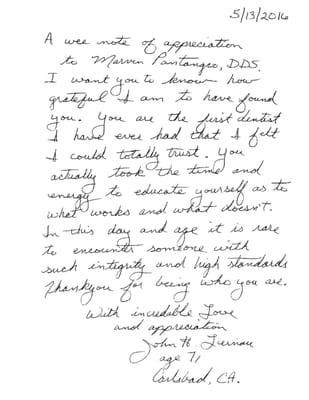 5/13/2016
A wee note of appreciation
to Marvin Pantangco, DDS.
I want you to know how
grateful I am to have found
you. You are the first dentist
I have ever had that I felt
I could totally trust. You
actually took the time and
energy to educate yourself as to
what works and what doesn't.
In this day and age it is rare
to encounter someone with
such integrity and high standards
Thankyou for being who you are.
With incredable Love
and appreciation
John H.
age 71
Carlsbad, CA.